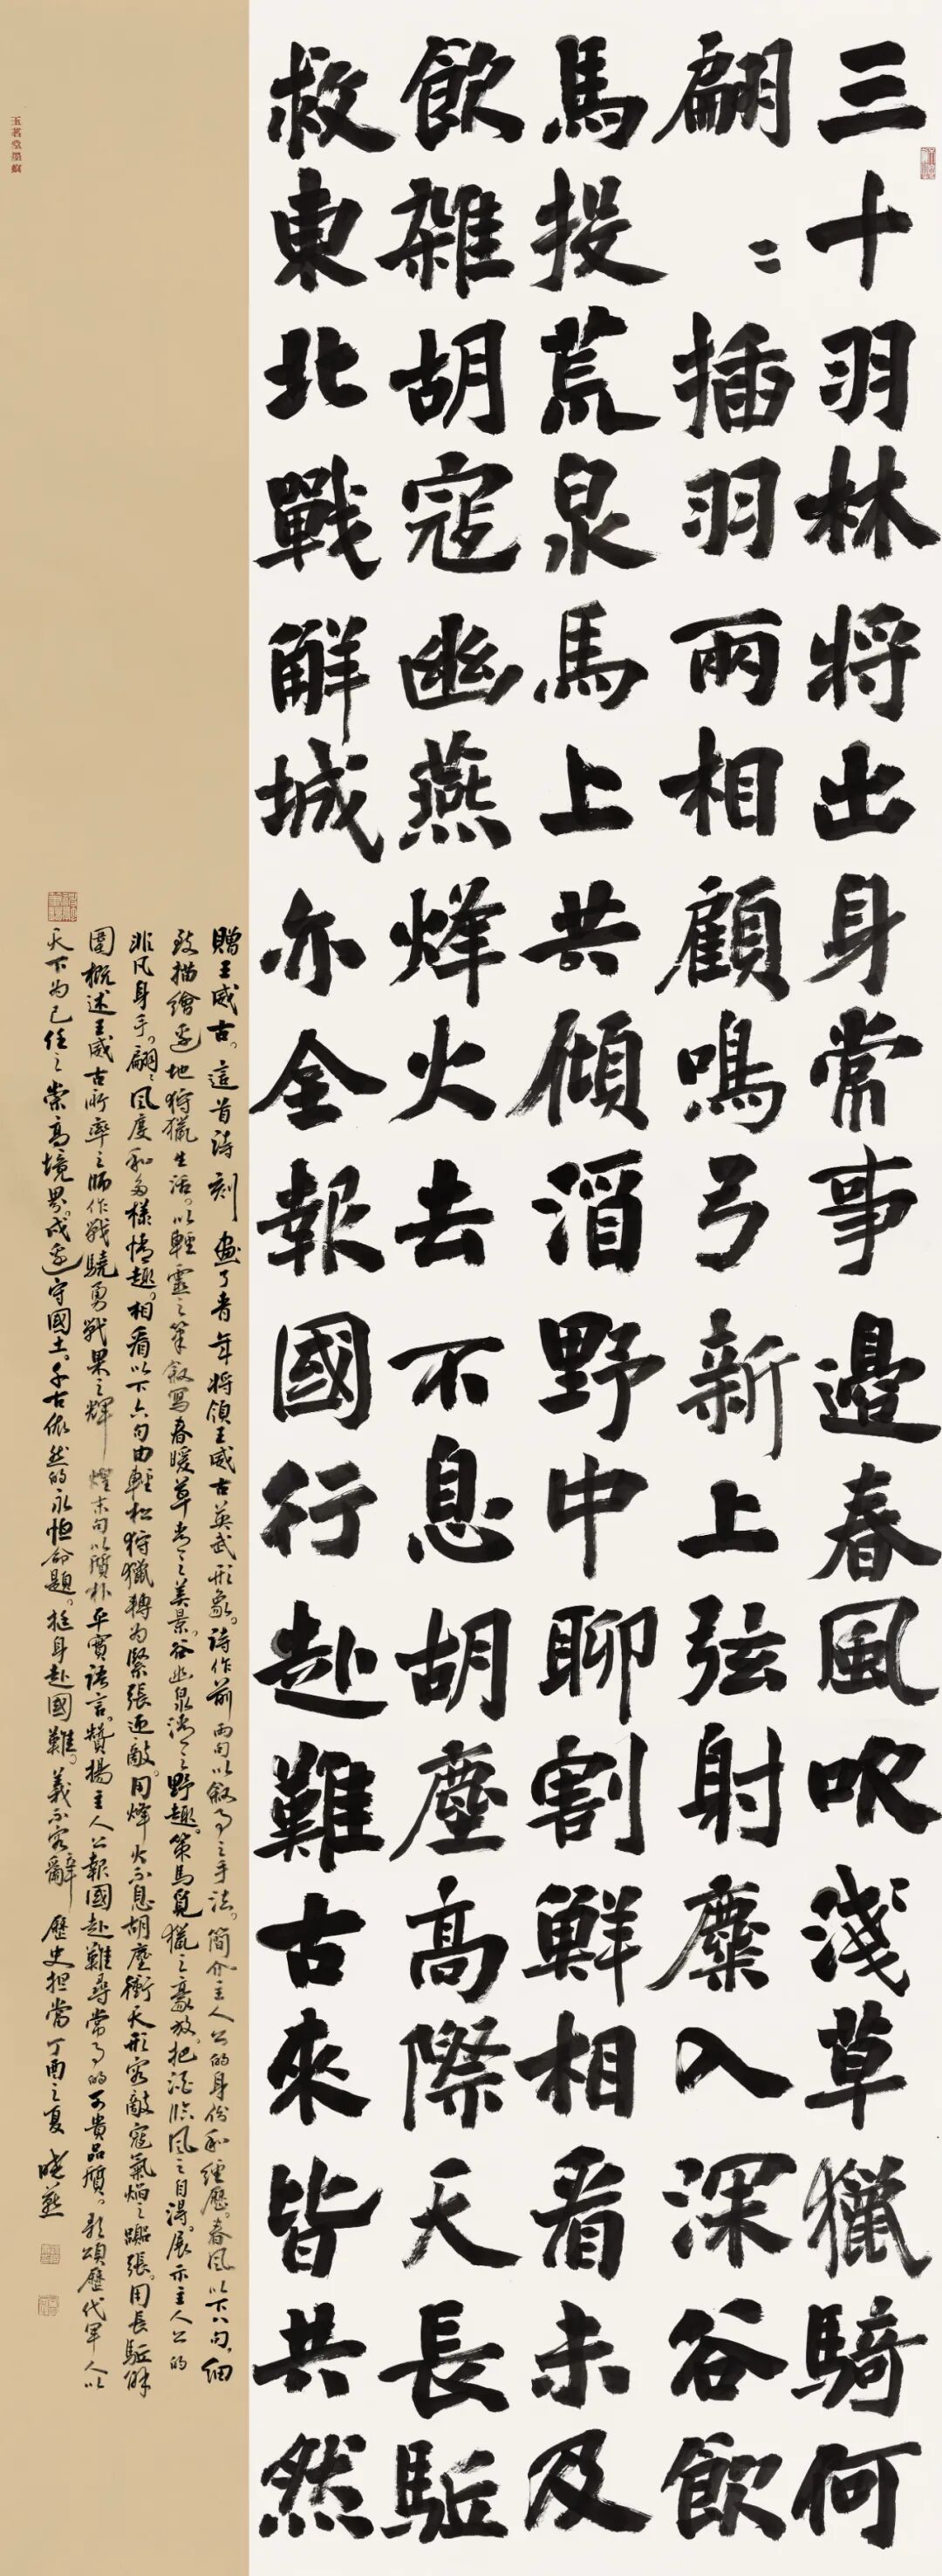 三十羽林将出身常事邊春風吹淺草獵騎何
翩〻插羽兩相顧鳴弓新上弦射麋入深谷飲
馬投荒泉馬上共傾酒野中聊割鮮相看未及
飲雜胡寇幽燕烽火去不息胡塵高際天長駈
救東北戰解城亦全報國行赴難古來皆共然
贈王威古。這首詩刻畫了青年将領王威古英武形象。詩作前兩句以敘事之手法。簡介主人公的身份和經歷。春風以下八句。細
致描繪邊地狩獵生活。以輕靈之筆敘寫春暖草青之美景。谷幽泉清之野趣。策馬覓獵之豪放。把酒臨風之自得。展示主人公的
非凡身手。翩〻風度和多樣情趣。相看以下六句由輕松狩獵轉为緊張迎敵。用烽火不息胡塵衝天形容敵寇氣焰之張。用長駈解
圍概述王威古所率之師作戰驍勇戰果之輝煌末句以質朴平實語言。贊揚主人公報國赴難尋常事的可貴品質。歌頌歷代軍人以
天下为己任之崇高境界。戍邊守國土。千古依然的永恒命題。挺身赴國難。義不容辭歷史担當丁酉之夏 曉燕
玉茗堂墨痕